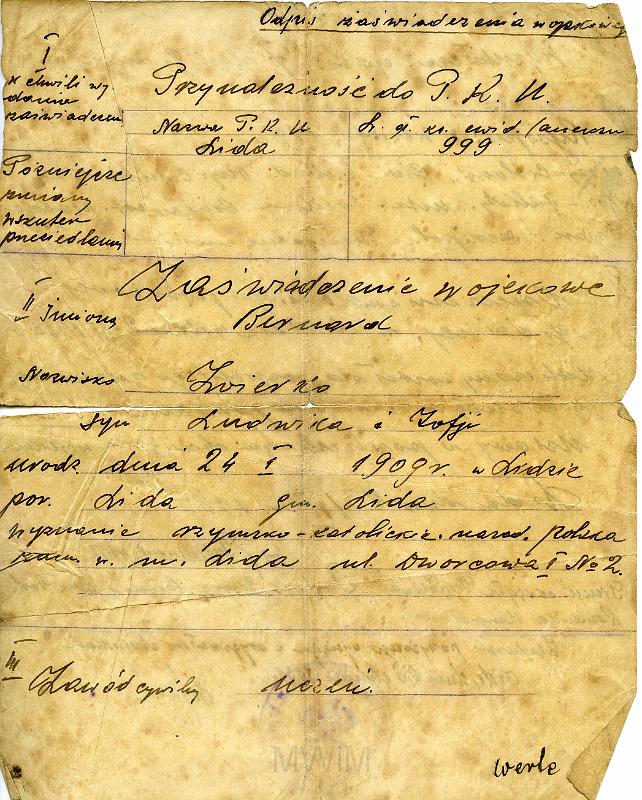 Odpis zaświadczenia wojskowego
I
w chwili wy
dania
zaświadczen
Przynależność do P. K. U.
Nazwa P. K. U
Lida
L. gł. ks. ewid. /
999
Późniejsze
zmiany
wskutek
przesiedlenia
Zaświadczenie wojskowe
II Imiona Bernard
Nazwisko Zwierko
syn Ludwika i Zofji
urodz. dnia 24 I 1909 r. w Lidzie
pow. Lida gm. Lida
wyznanie rzymsko-katolickie. narod. polska
zam. w. m. Lida ul. Dworcowa I No 2.
III
Zawód cywilny uczeń.
MIWAM
verte